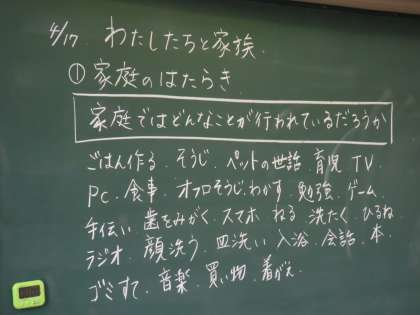 4/17. わたしたちと家族.
①家庭のはたらき
家庭ではどんなことが行われているだろうか
ごはん作る. そうじ. ペットの世話. 育児 TV
PC. 食事. オフロそうじわかす. 勉強. ゲーム.
手伝い 歯をみがく. スマホ ねる 洗たく ひるね
ラジオ. 顔洗う. 皿洗い 入浴. 会話. 本.
ゴミすて. 音楽. 買い物. 着がえ.